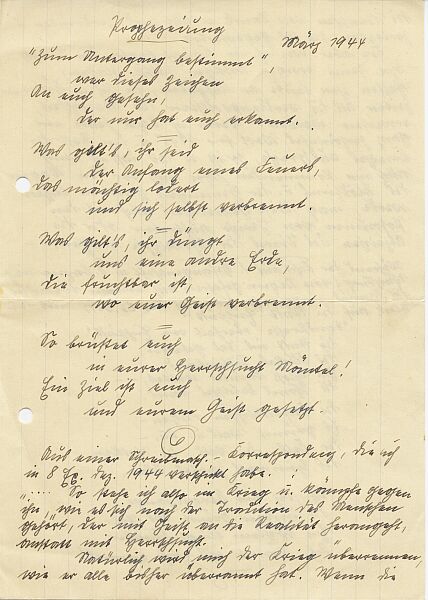 Prophezeiung
März 1944
"Zum Untergang bestimmt",
wer dieses Zeichen
An euch gesehn,
der nur hat euch erkannt.
Was gilt's, ihr seid
der Anfang eines Feuers,
das mächtig lodert
und sich selbst verbrennt.
Was gilt's, ihr düngt
uns eine andre Erde,
die fruchtbar ist,
wo euer Geist verbrennt.
So brüstet euch
in eurer Herrschsucht Mäntel!
Ein Ziel ist euch
und eurem Geist gesetzt.
6
Aus einer - Korrespondenz, die ich
in 8 Ex. dez. 1944 verschickt habe.
"..... So stehe ich also im Krieg u. kämpfe gegen
ihn, wie es sich nach der Tradition des Menschen
gehört, der mit Geist an die Realität herangeht,
anstatt mit Herrschsucht.
Natürlich wird mich der Krieg überrennen,
wie er alle bisher überrannt hat. Wenn die